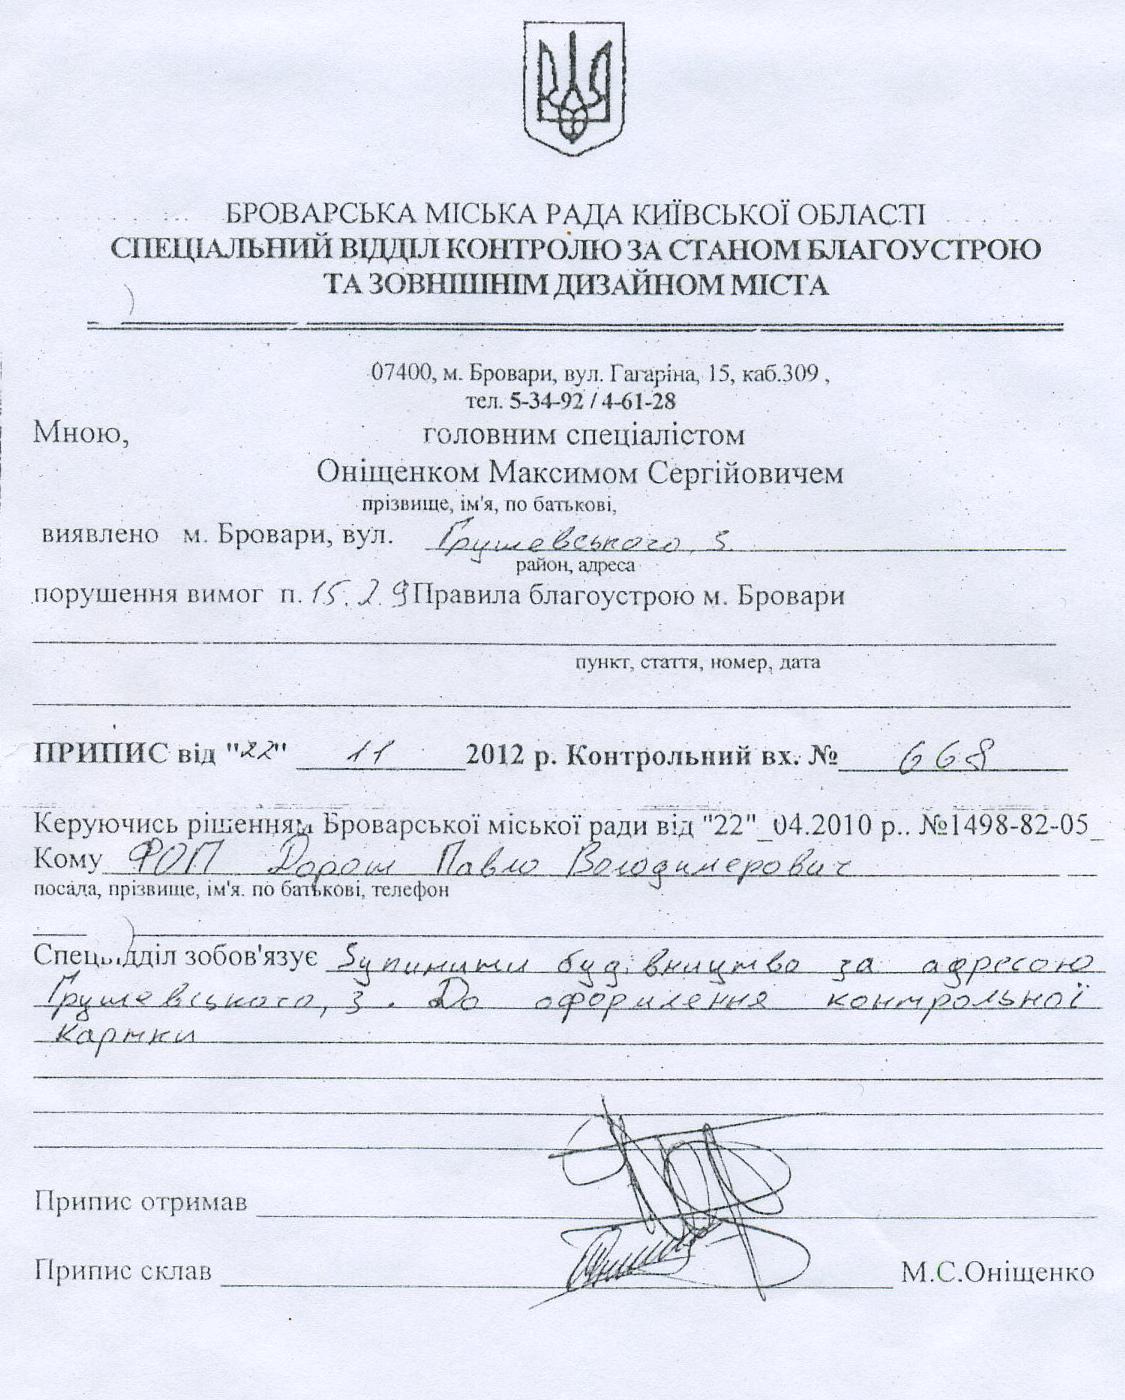 БРОВАРСЬКА МІСЬКА РАДА КИЇВСЬКОЇ ОБЛАСТІ
СПЕЦІАЛЬНИЙ ВІДДІЛ КОНТРОЛЮ ЗА СТАНОМ БЛАГОУСТРОЮ
ТА ЗОВНІШНІМ ДИЗАЙНОМ МІСТА
07400, м. Бровари, вул. Гагаріна, 15, каб.309 ,
тел. 5-34-92 / 4-61-28
Мною, головним спеціалістом
Оніщенком Максимом Сергійовичем
прізвище, ім'я, по батькові,
виявлено м. Бровари, вул. Грушевського, 3
район, адреса
порушення вимог п. 15.2.9 Правила благоустрою м. Бровари
пункт, стаття, номер, дата
ПРИПИС від "22" 11 2012 р. Контрольний вх. № 668
Керуючись рішенням Броварської міської ради від "22"_04.2010 р.. №1498-82-05_
Кому ФОП Дорош Павло Володимерович
посада, прізвище, ім'я. по батькові, телефон
Спецвідділ зобов'язує Зупинити будівництво за адресою
Грушевського, 3. До оформлення контрольної
картки
Припис отримав
Припис склав М.С.Оніщенко